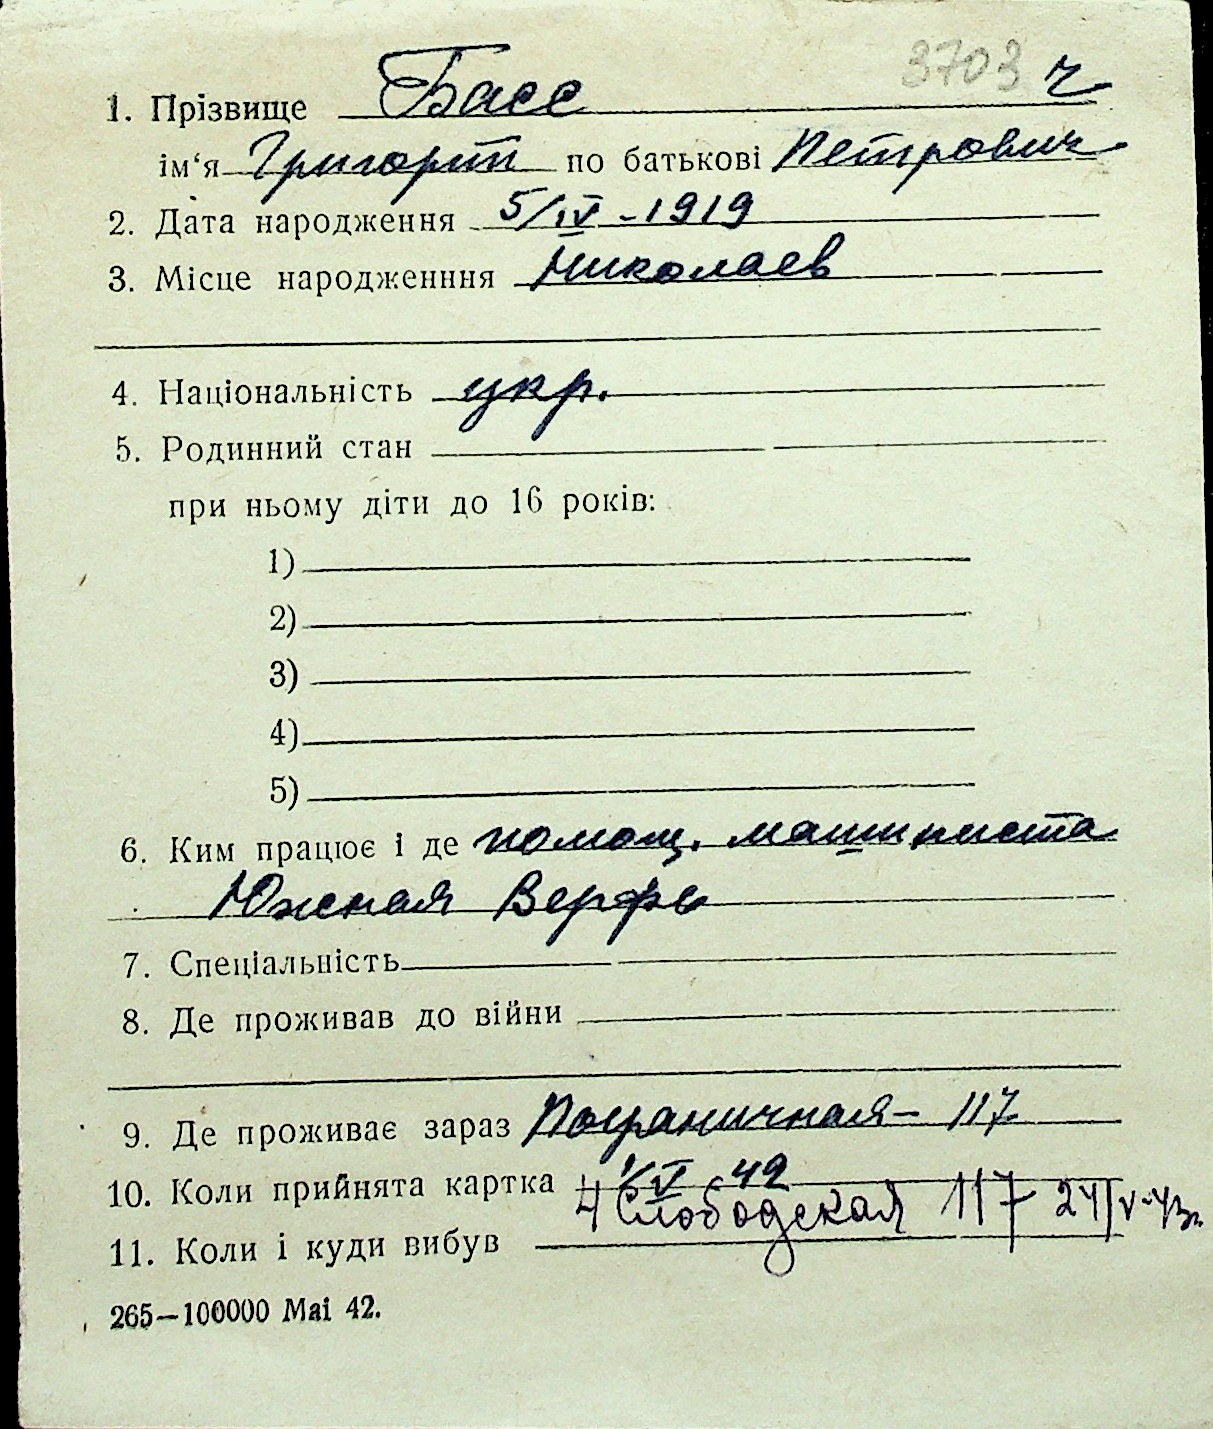 3703 ч
1. Прізвище Басс
ім‘я Григорий по батькові Петрович
2. Дата народження 5/IV-1919
3. Місце народженння Николаев
4. Національність укр.
5. Родинний стан
при ньому діти до 16 років:
1)
2)
3)
4)
5)
6. Ким працює і де помощ. машиниста
Южная Верфь
7. Спеціальність
8. Де проживав до війни
9. Де проживає зараз Пограничная – 117
10. Коли прийнята картка 1/V-42
4 Слободская 117 24/V-43г.
11. Коли і куди вибув
265—100000 Mai 42.